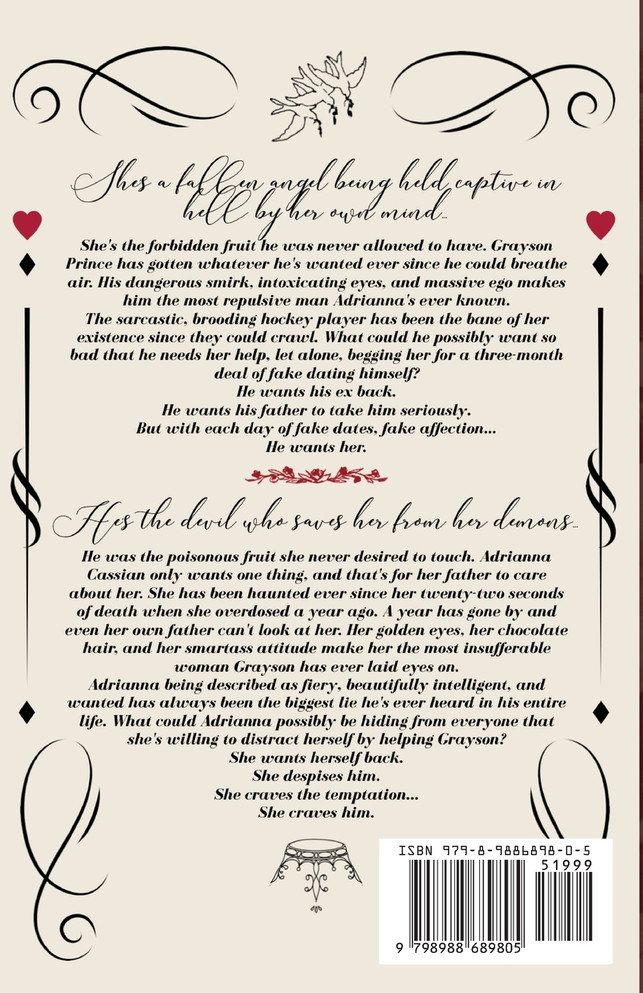 Shes a fallen angel being held captive in
hell by her own mind...
She's the forbidden fruit he was never allowed to have. Grayson
Prince has gotten whatever he's wanted ever since he could breathe
air. His dangerous smirk, intoxicating eyes, and massive ego makes
him the most repulsive man Adrianna's ever known.
The sarcastic, brooding hockey player has been the bane of her
existence since they could crawl. What could he possibly want so
bad that he needs her help, let alone, begging her for a three-month
deal of fake dating himself?
He wants his ex back.
He wants his father to take him seriously.
But with each day of fake dates, fake affection...
He wants her.
Hes the devil who saves her from her demons...
He was the poisonous fruit she never desired to touch. Adrianna
Cassian only wants one thing, and that's for her father to care
about her. She has been haunted ever since her twenty-two seconds
of death when she overdosed a year ago. A year has gone by and
even her own father can't look at her. Her golden eyes, her chocolate
hair, and her smartass attitude make her the most insufferable
woman Grayson has ever laid eyes on.
Adrianna being described as fiery, beautifully intelligent, and
wanted has always been the biggest lie he's ever heard in his entire
life. What could Adrianna possibly be hiding from everyone that
she's willing to distract herself by helping Grayson?
She wants herself back.
She despises him.
She craves the temptation...
She craves him.
ISBN 979-8-9886898-0-5
51999
9 798988 689805